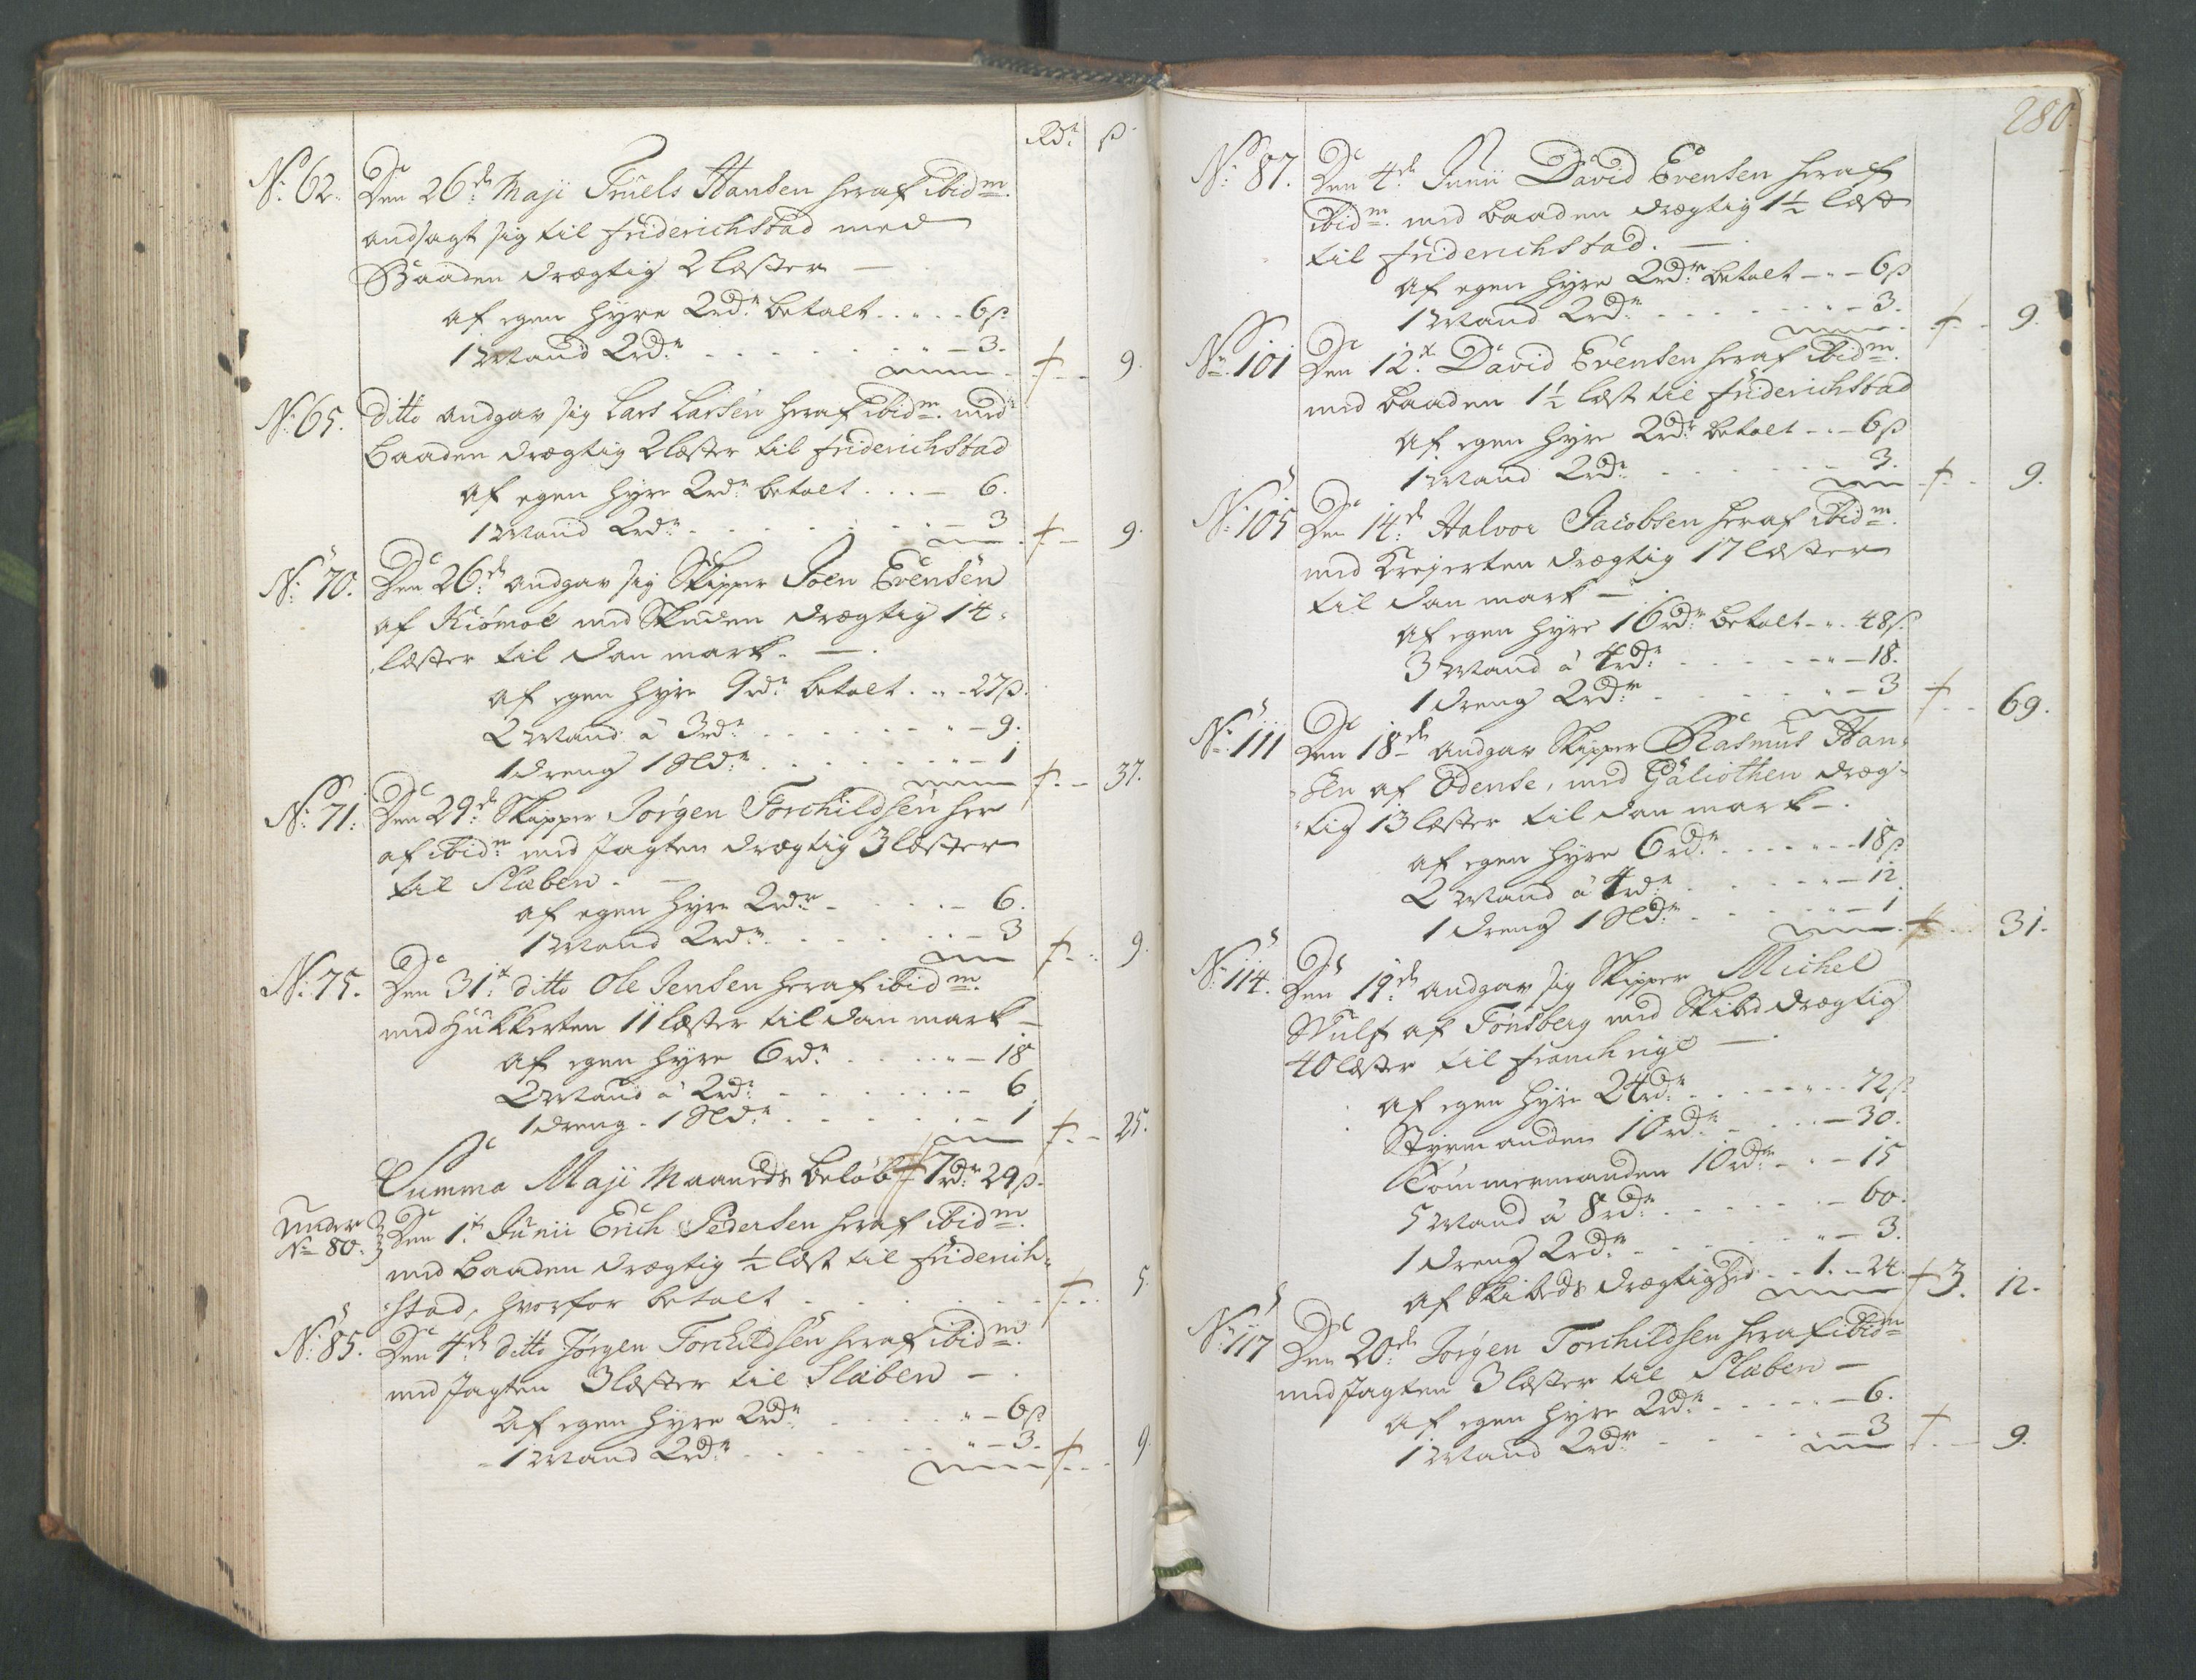 Rdr ß
No 62. Den 26de Maji Truels Hansen heraf ibidm.
andsagt sig til Friderichstad med
Baaden drægtig 2 læster —
af egen hyre 2 rdr betalt . . . . 6 ß
1 Mand 2 rdr . . . . . . . — 3. — 9.
No 65. ditto andgav sig Lars Larsen heraf ibidm. med
baaden drægtig 2 læster til Friderichstad
af egen hyre 2 rdr betalt . . . — 6.
1 Mand 2 rdr . . . . . . — 3 — 9.
No 70. Den 26de andgav sig Skipper Joen Evensen
af Kiømøe med Skuden drægtig 14
læster til Danmark. —
af egen hyre 9 rdr betalt . . . 27 ß.
2 Mand à 3 rdr . . . . . . — 9.
1 dreng 1 Sldr . . . . . . — 1 — 37.
No 71. Den 29de Skipper Jørgen Torchildsen her
af ibidm med Jagten drægtig 3 læster
til Slæben. —
af egen hyre 2 rdr — . . . . — 6.
1 Mand 2 rdr . . . . . . — 3 — 9.
No 75. Den 31te ditto Ole Jensen heraf ibidm.
med Hukkerten 11 læster til Danmark —
af egen hyre 6 rdr . . . . . — 18
2 Mand à 2 rdr . . . . . . — 6.
1 dreng - 1 Sldr . . . . . . — 1 — 25.
Summa Maji Maaneds beløb 7 rdr 29 ß.
Under
No 80. Den 1te Junii Erich Pedersen heraf ibidm.
med baaden drægtig ½ læst til Friderich-
stad, hvorfor betalt . . . . . . . 5.
No 85. Den 4de ditto Jørgen Torchildsen heraf ibidm.
med Jagten 3 læster til Slæben — .
af egen hyre 2 rdr . . . . . — 6 ß
1 Mand 2 rdr . . . . . . — 3. — 9.
280.
No 87. Den 4de Junii David Evensen heraf
ibidm. med baaden drægtig 1½ læst
til Friderichstad. —
af egen hyre 2 rdr betalt — . — 6 ß
1 Mand 2 rdr . . . . . . — 3. — 9.
No 101 Den 12te David Evensen heraf ibidm.
med baaden 1½ læst til Friderichstad
af egen hyre 2 rdr betalt — . — 6 ß
1 Mand 2 rdr . . . . . . — 3. — 9.
No 105 Den 14de Halvor Jacobsen heraf ibidm.
med Krejerten drægtig 17 læster
til Danmark — .
af egen hyre 16 rdr betalt — . . 48 ß.
3 Mand à 4 rdr . . . . . . — 18.
1 dreng 2 rdr . . . . . . — 3 — 69.
No 111 Den 18de andgav Skipper Rasmus Han-
sen af Odense, med Galiothen dræg-
tig 13 læster til Danmark — .
af egen hyre 6 rdr . . . . . . 18 ß
2 Mand à 4 rdr . . . . . . — 12
1 dreng 1 Sldr . . . . . . — 1 — 31.
No 114. Den 19de andgav sig Skipper Michel
Wulf af Tønsberg med Skibed drægtig
40 læster til Franchrige — .
af egen hyre 24 rdr . . . . . . 72 ß.
Styrmanden 10 rdr . . . . — 30.
Tømmermanden 10 rdr . . — 15
5 Mand à 8 rdr . . . . . . — 60.
1 dreng 2 rdr . . . . . . — 3.
af Skibeds drægtighed . . 1. — 24. 3. 12.
No 117 Den 20de Jørgen Torchildsen heraf ibidm
med Jagten 3 læster til Slæben —
af egen hyre 2 rdr . . . . . — 6.
1 Mand 2 rdr . . . . . . — 3 — 9.